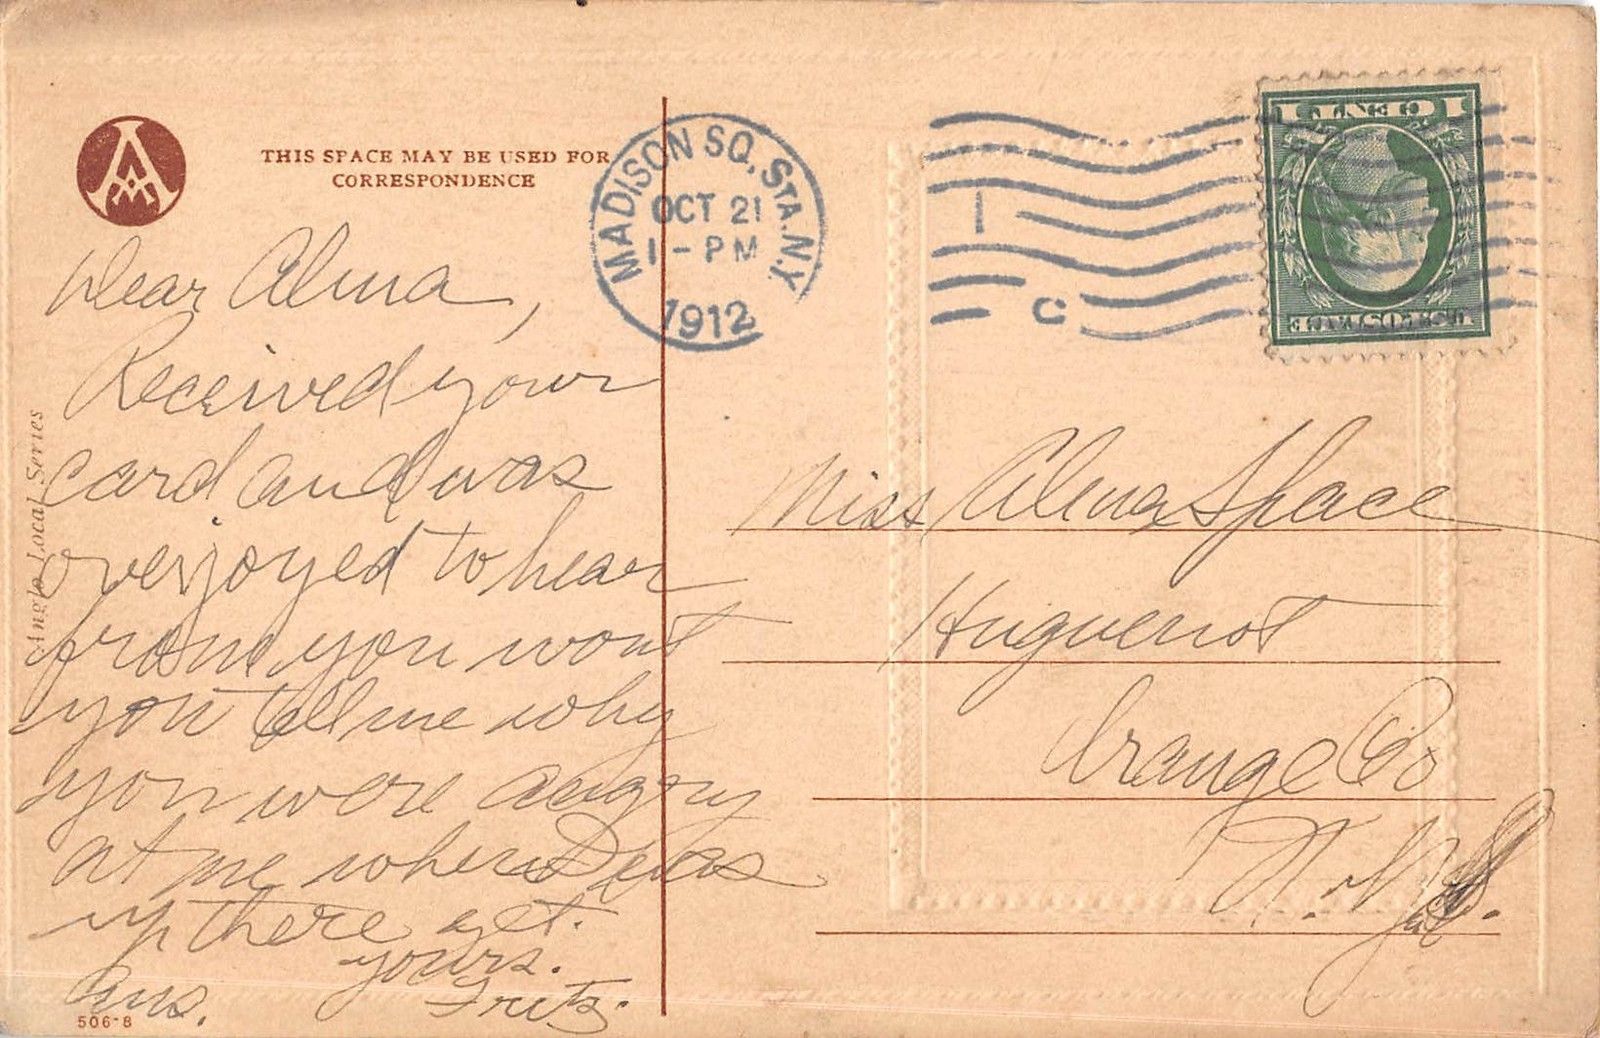 THIS SPACE MAY BE USED FOR
CORRESPONDENCE
MADISON SQ. STA. N.Y.
OCT 21
1 - PM
1912
1
C
1 CENT 1
U.S. POSTAGE
Dear Alma,
Received your
card and was
overjoyed to hear
from you wont
you tell me why
you were angry
at me when I was
up there
yours.
Ans. Fritz.
Miss Alma Space
Huguenot
Orange Co
N.Y.
Anglo Local Series
506-8